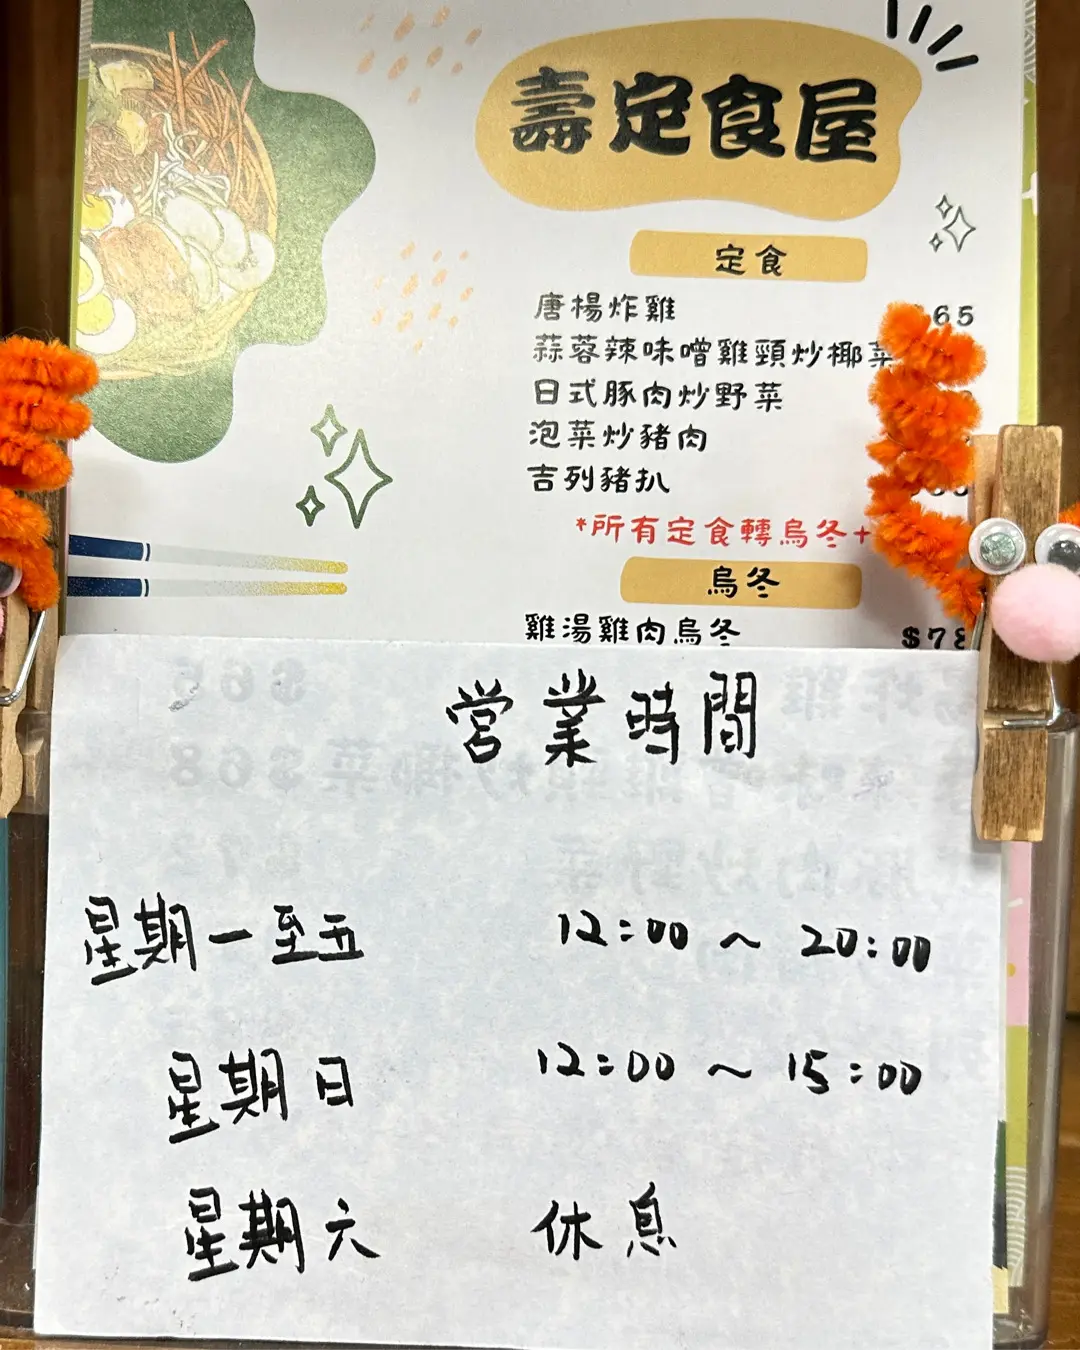 壽定食屋
定食
唐楊炸雞 65
蒜蓉辣味噌雞頸炒椰菜
日式豚肉炒野菜
泡菜炒豬肉
吉列豬扒
*所有定食轉烏冬+
烏冬
雞湯雞肉烏冬 $78
营業時間
星期一至五 12:00 ~ 20:00
星期日 12:00 ~ 15:00
星期六 休息